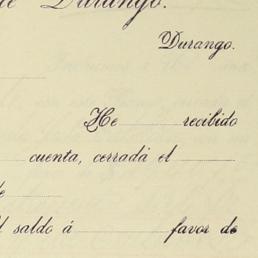 de Durango.
Durango.
He recibido
cuenta, cerrada el
de
saldo á favor de